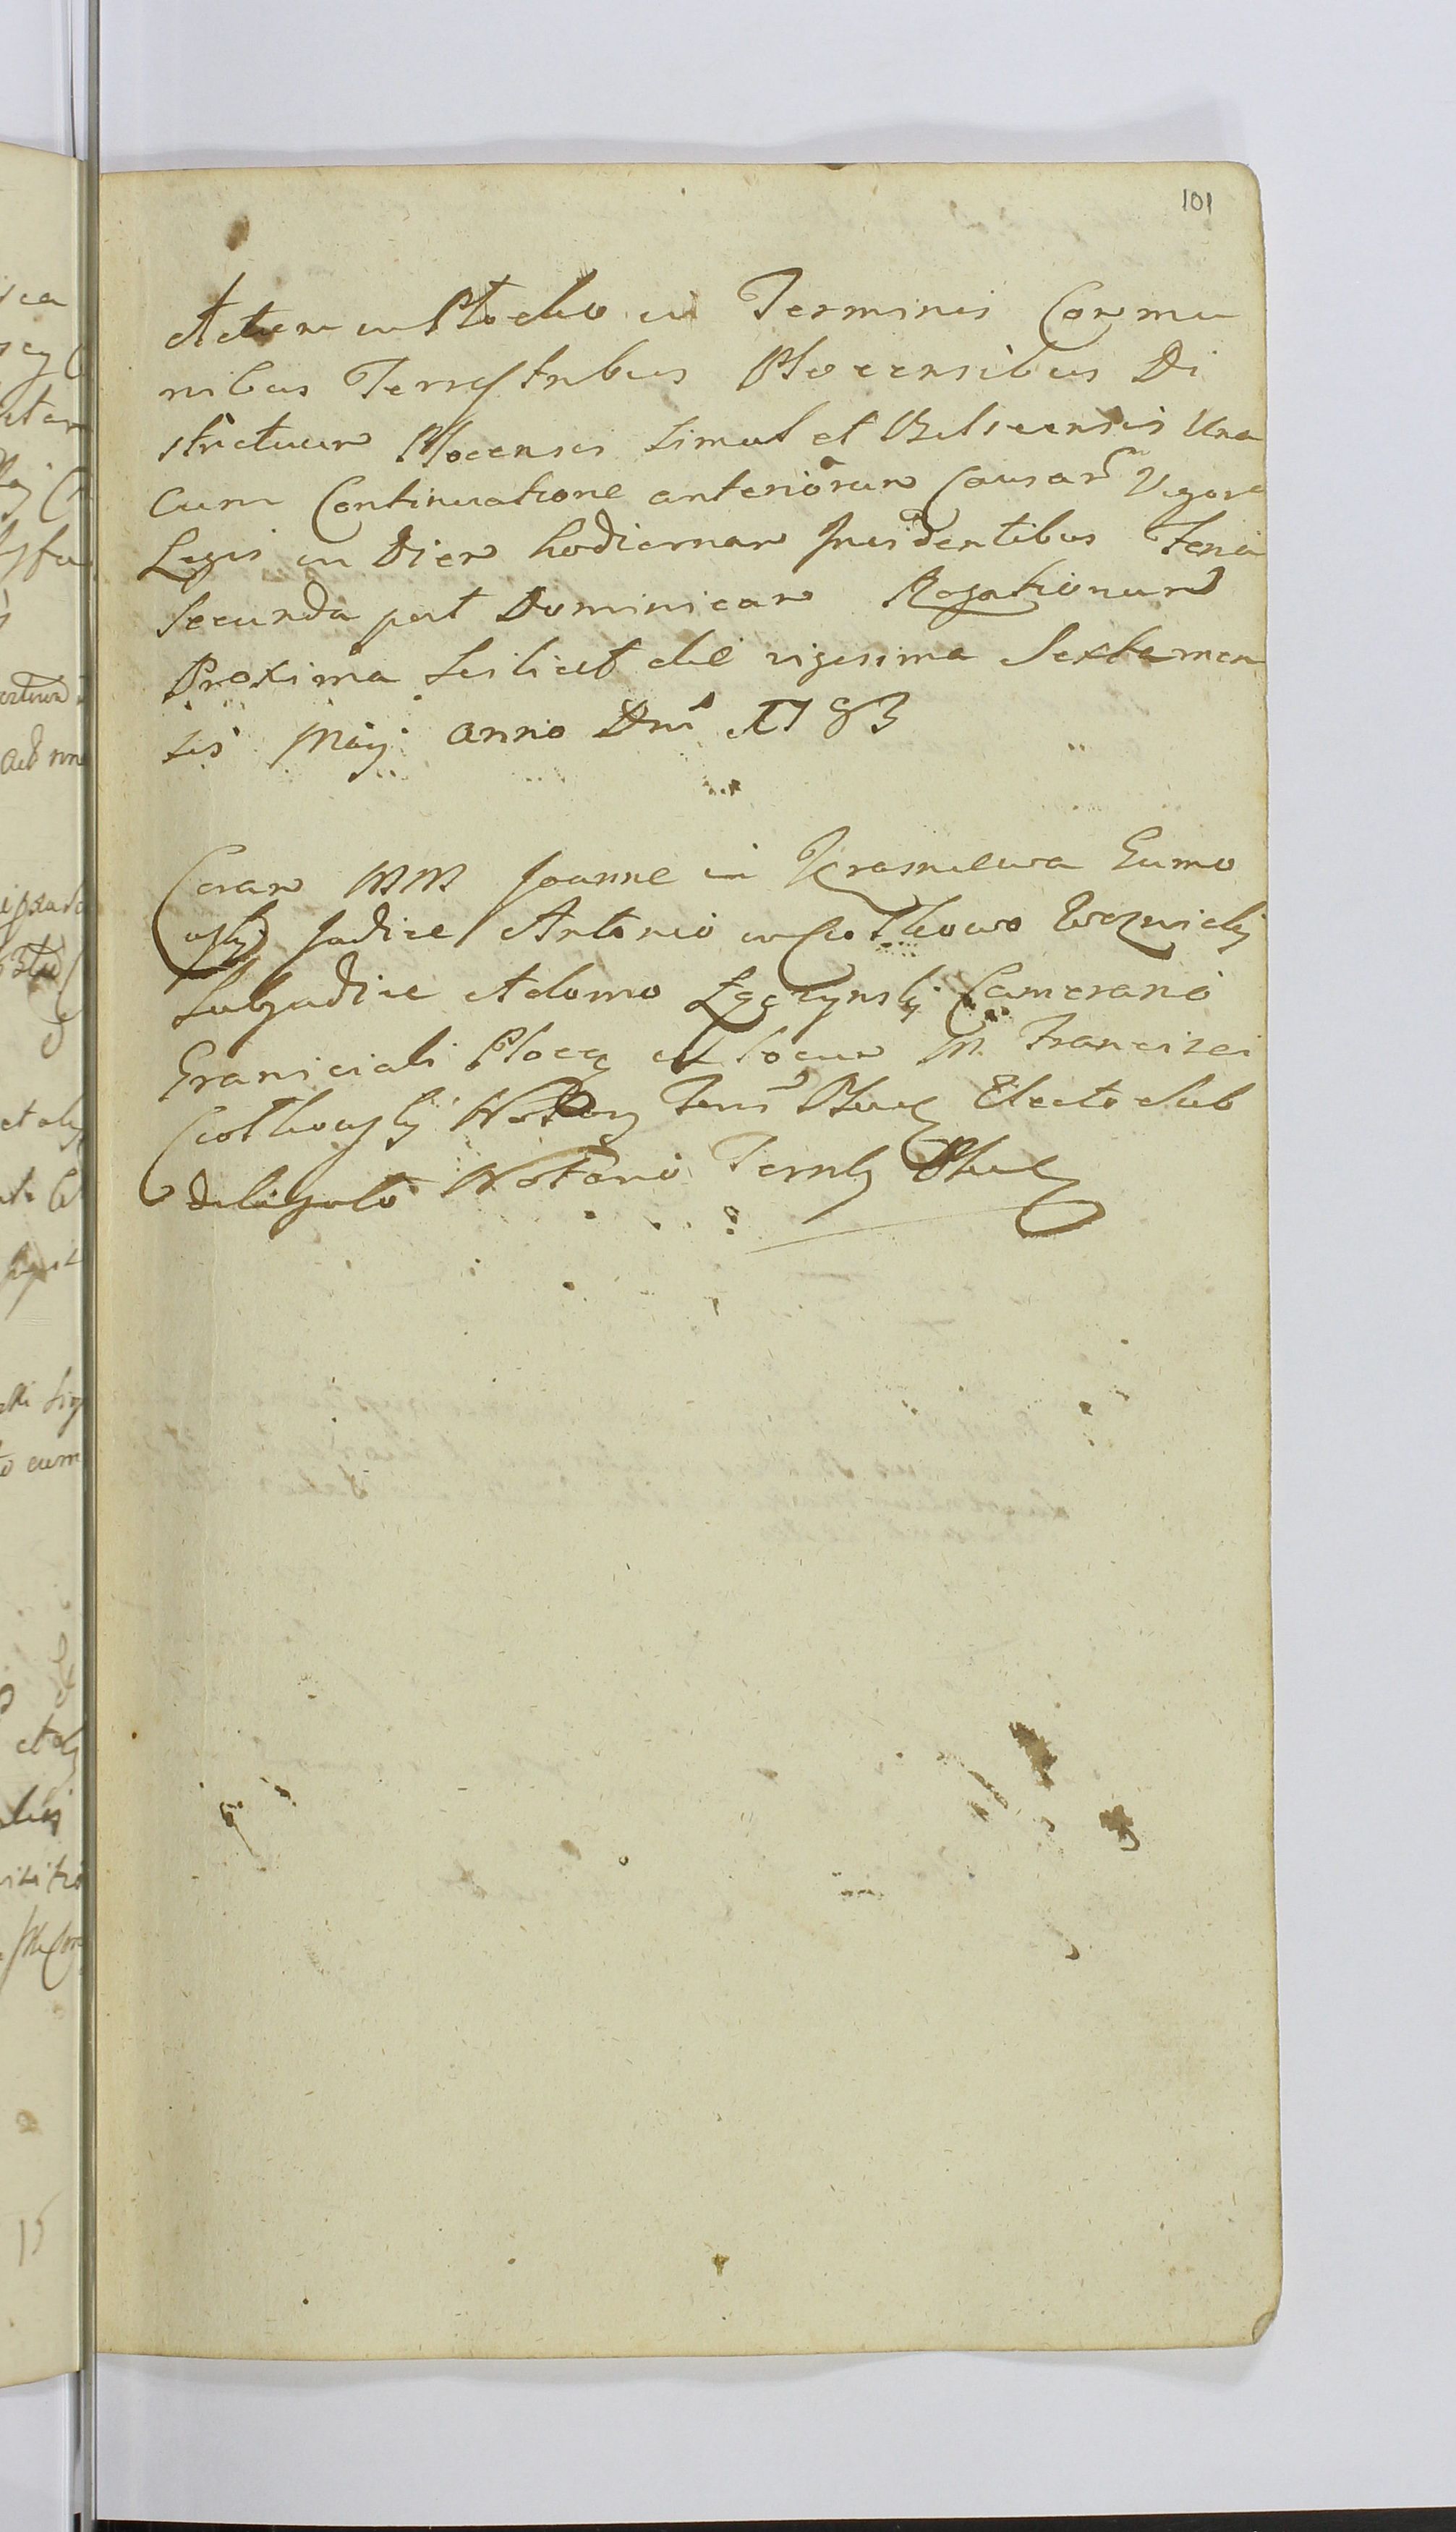 101
Actum in Plocko in Terminis Commu
nibus Terrestribus Plocensibus Di
strictuum Plocensis simul et Bielscensis Una
cum Continuatione anteriorum Causar Vigore
Legis in Diem hodiernam Incidentibus Feria
Secunda post Dominicam Rogationum
Proxima scilicet die vigesima Sexta men
sis Maij anno Dni 1783
Coram MM Joanne in
Judice Antonio in
Subjudice Adamo Camerario
Graniciali Plocen et locum M. Francisci
Notarij Plocen Electo Sub
deligato Notario Plocen